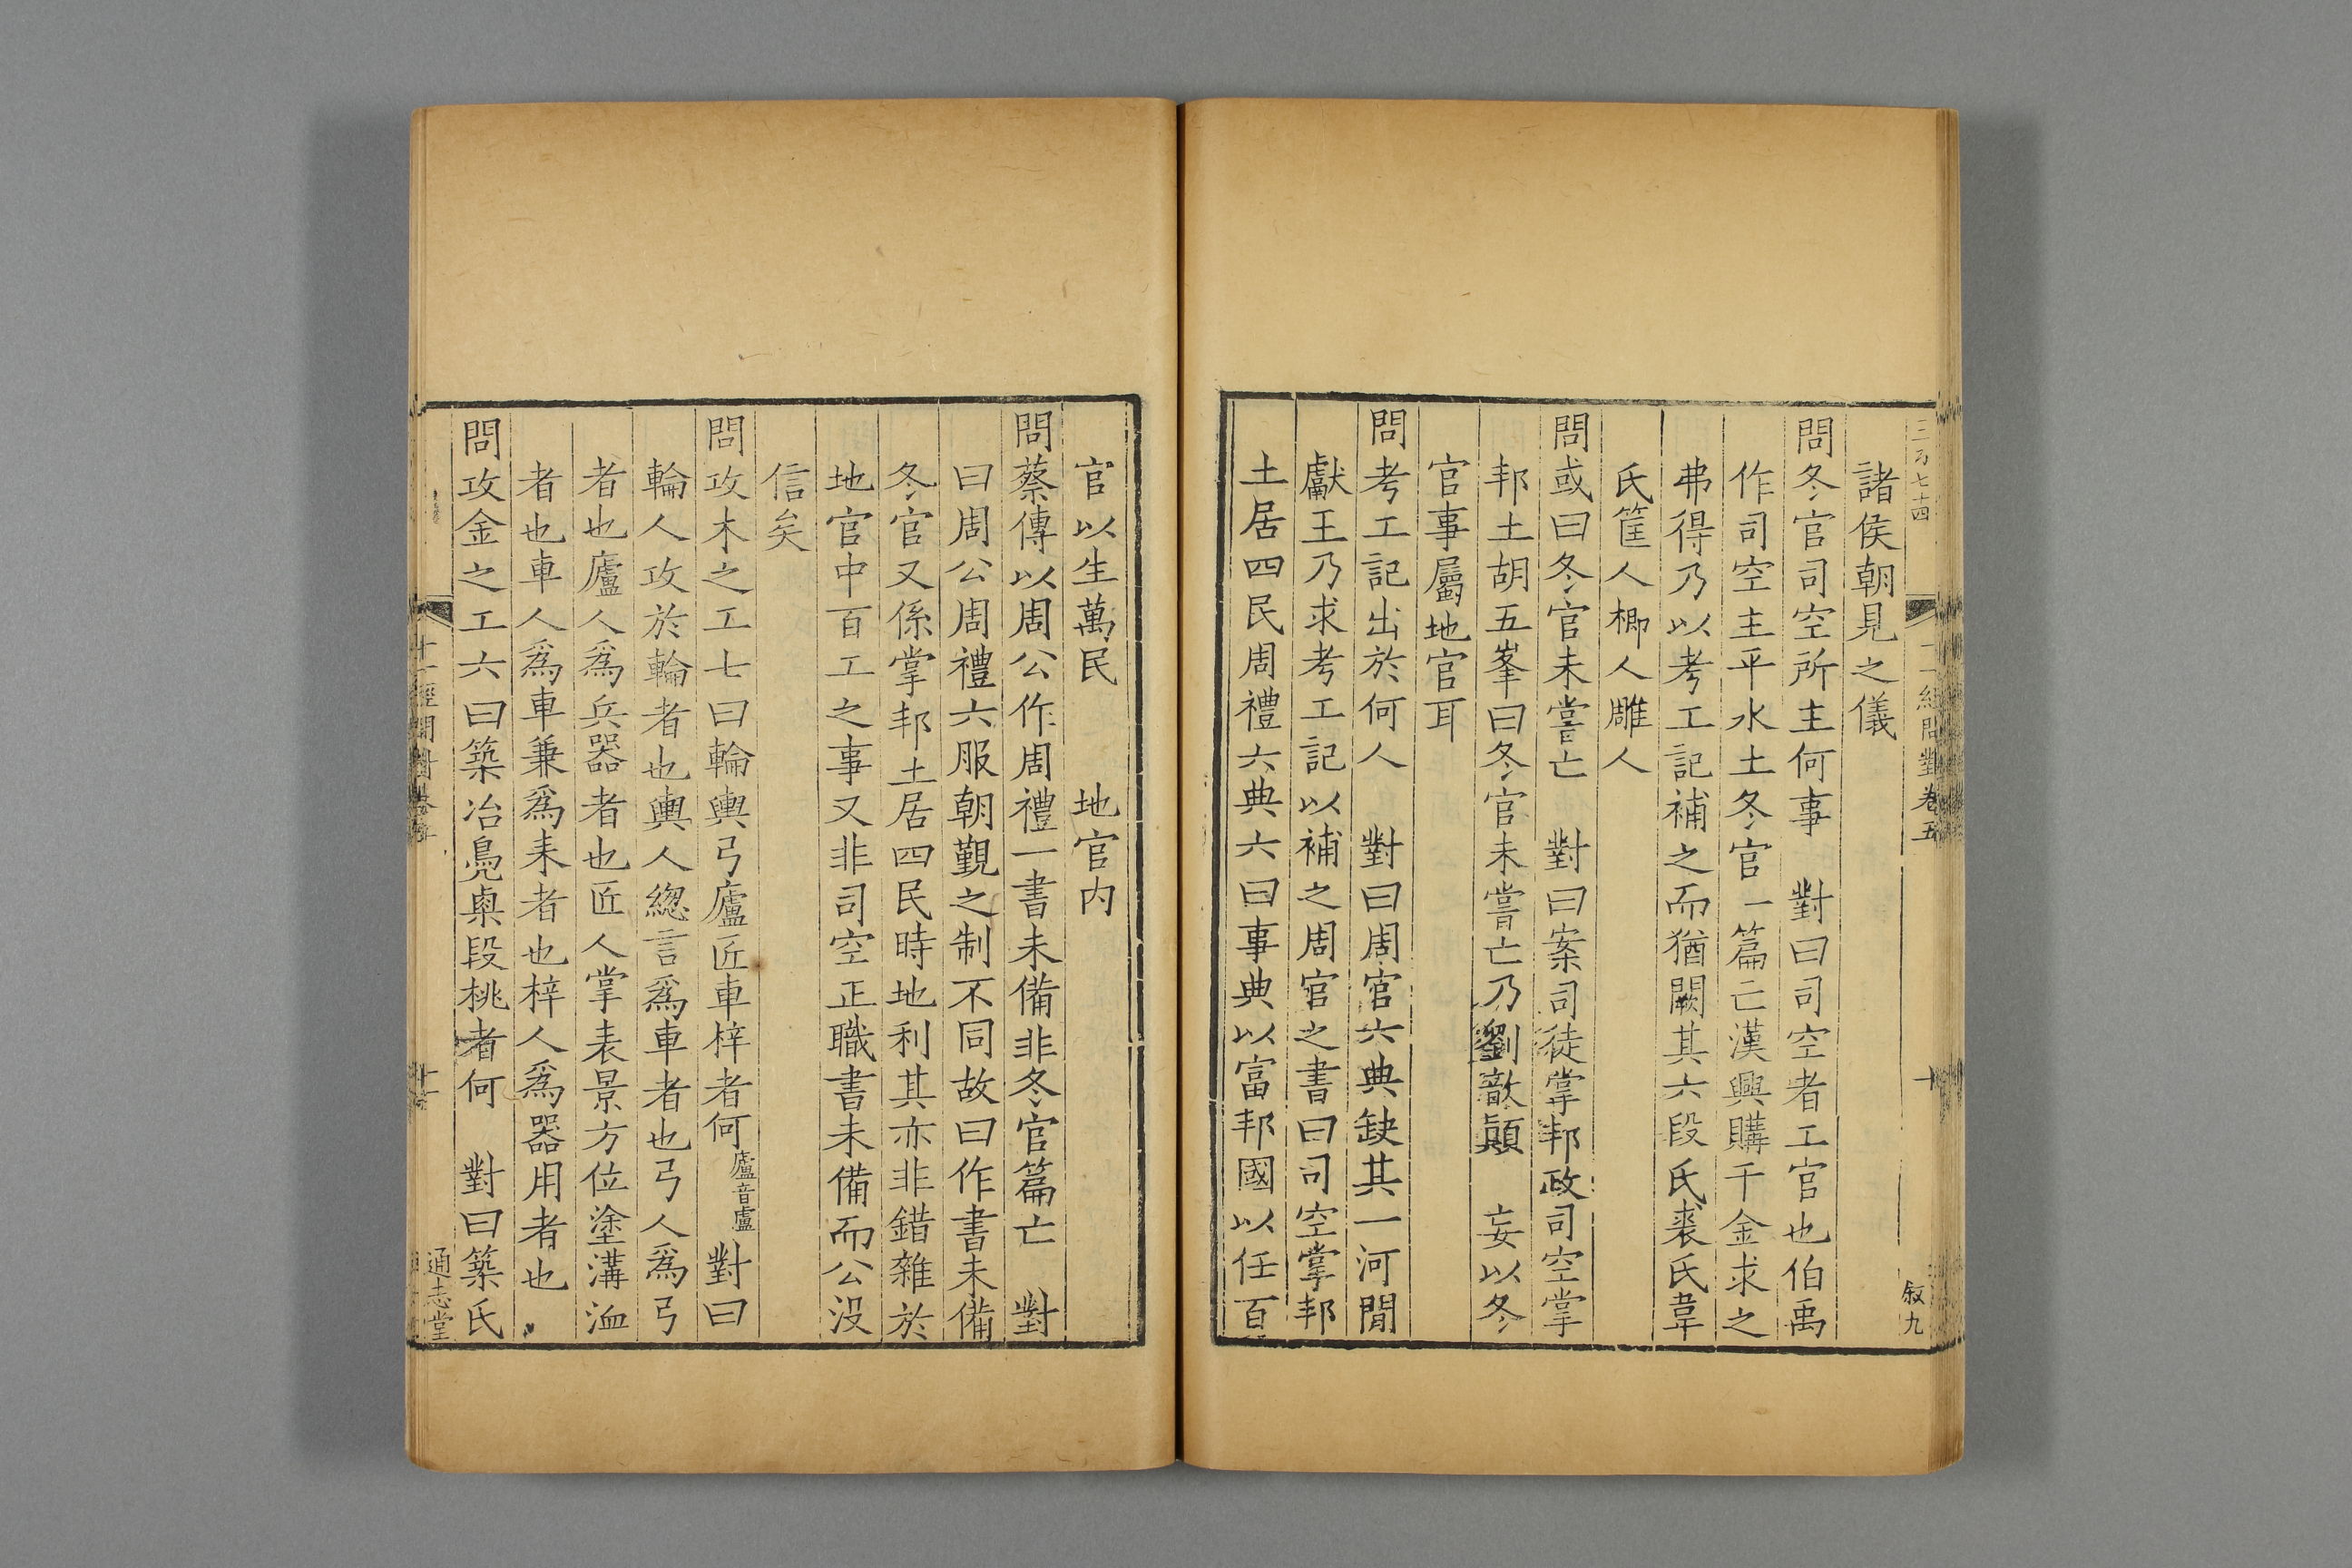 諸侯朝見之儀
問冬官司空所主何事　對曰司空者工官也伯禹
作司空主平水土冬官一篇亡漢興購千金求之
弗得乃以考工記補之而猶闕其六段氏裘氏韋
氏筐人楖人雕人
問或曰冬官未嘗亡　對曰案司徒掌邦政司空掌
邦土胡五峯曰冬官未嘗亡乃劉歆顛　妄以冬
官事屬地官耳
問考工記出於何人　對曰周官六典缺其一河閒
獻王乃求考工記以補之周官之書曰司空掌邦
土居四民周禮六典六曰事典以富邦國以任百
官以生萬民　　地官内
問蔡傳以周公作周禮一書未備非冬官篇亡　對
曰周公周禮六服朝覲之制不同故曰作書未備
冬官又係掌邦土居四民時地利其亦非錯雜於
地官中百工之事又非司空正職書未備而公没
信矣
問攻木之工七曰輪輿弓廬匠車梓者何廬音盧對曰
輪人攻於輪者也輿人緫言爲車者也弓人爲弓
者也廬人爲兵器者也匠人掌表景方位塗溝洫
者也車人爲車兼爲耒者也梓人爲器用者也
問攻金之工六曰築冶鳧㮚段桃者何　對曰築氏
十一經問對卷五
十
叙九
十一
通志堂